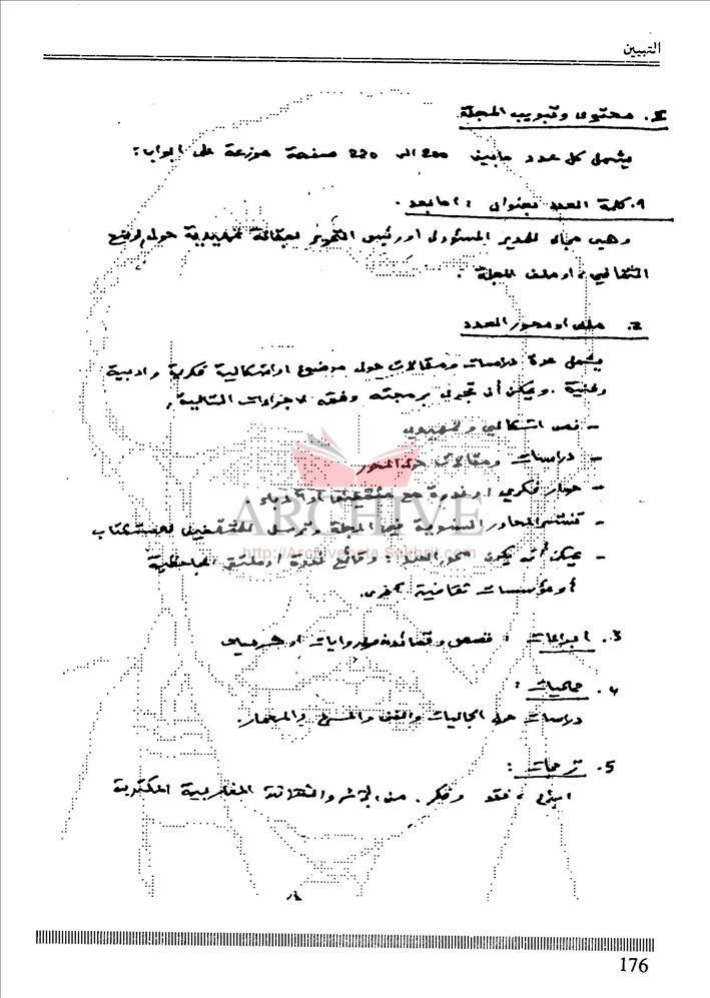 التبيين
I. محتوى وتبويب المجلة
يشمل كل عدد مابين 200 الى 220 صفحة موزعة على ابواب:
1. كلمة العدد بعنوان : امابعد.
وهي مجال للمدير المسؤول او رئيس التحرير حول الوضع
الثقافي، او ملف المجلة.
2. ملف او محور العدد
يشمل عدة دراسات ومقالات حول موضوع او اشكالية فكرية وادبية
وفنية . ويمكن أن تجري برمجته وفقه الاجراءات التالية.
- نص اشكالي وتمهيدي
- دراسات ومقالات حول المحور
- حوار فكري او ندوة مع
- تنشر المحاور السنوية فيها المجلة وترسل للمثقفين
- يمكن أن يكون محور العدد : وقائع لندوة او ملتقى الجاحظية
أو مؤسسات ثقافية اخرى.
3. ابداعات : قصص وقصائد روايات او
4. جماليات :
دراسات حول الجماليات والفن والمسرح والمعمار.
5. ترجمات :
ابداع ، نقد وفكر. من والثقافة المغاربية المكتوبة
ARCHIVE
http://Archivebeta.Sakhrit.com
176